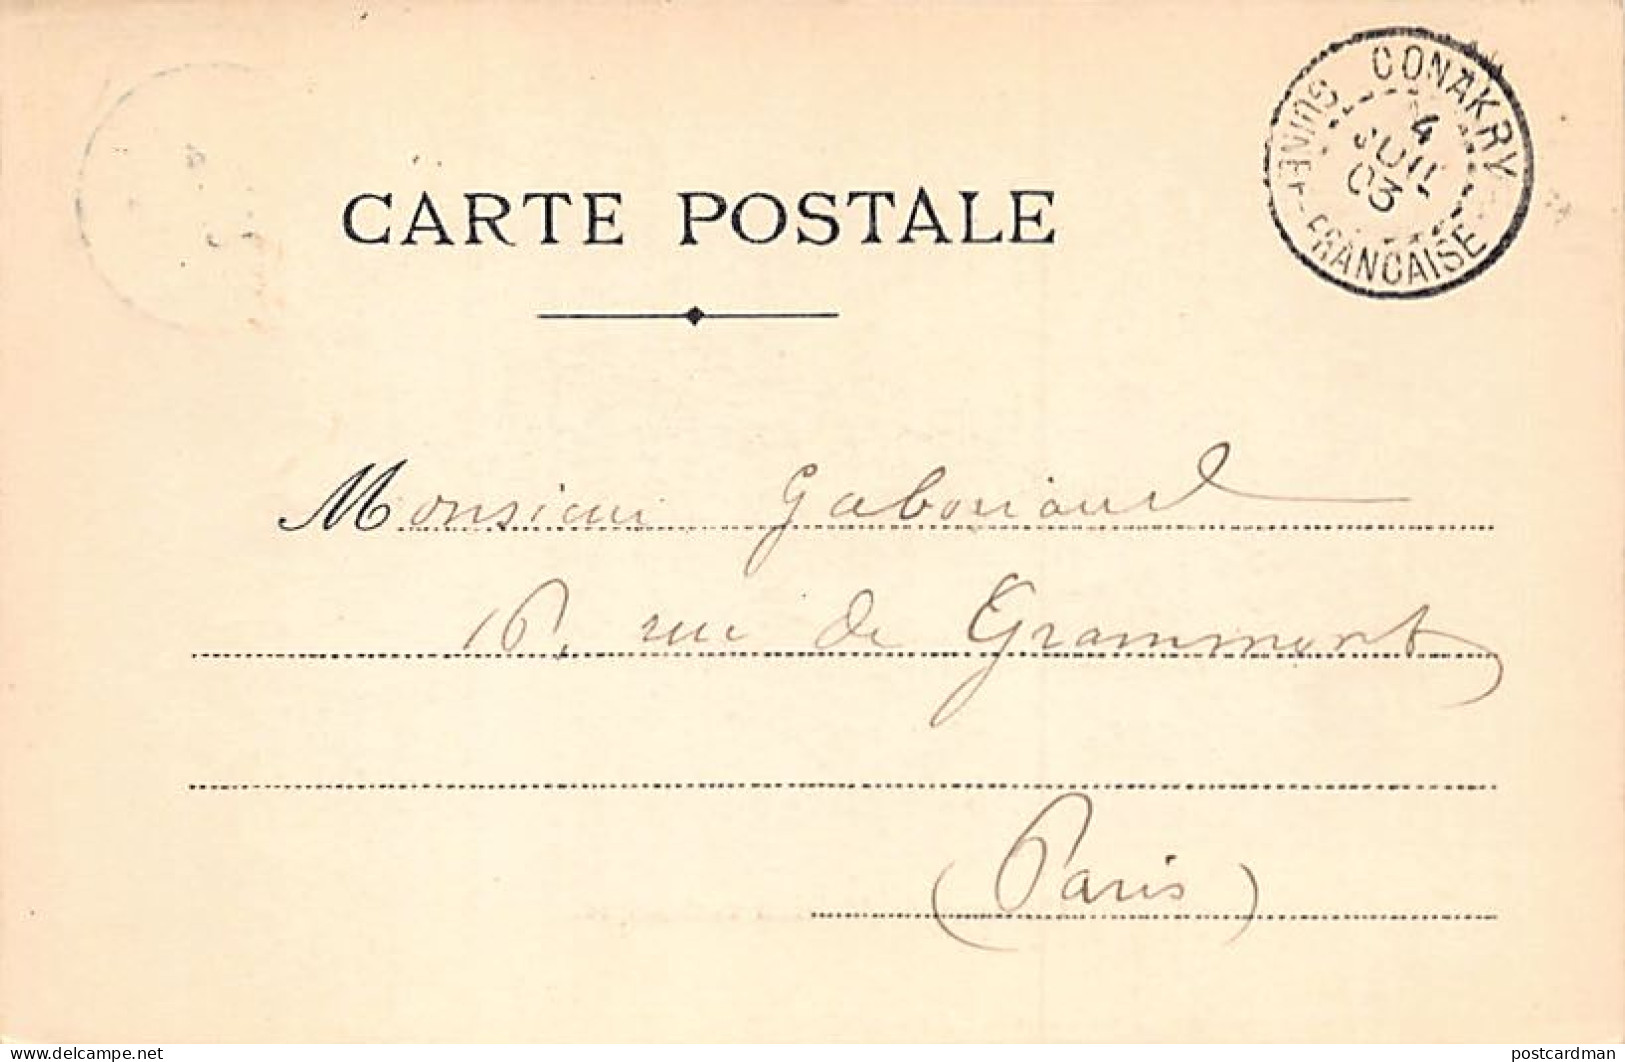 CONAKRY
4
JUIL
03
GUINÉE FRANCAISE
CARTE POSTALE
Monsieur Gaboriaud
16, rue de Grammont
(Paris)
https://www.delcampe.net
postcardman